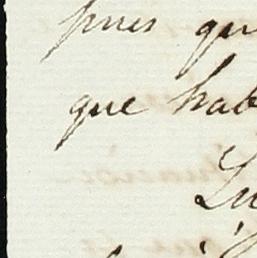 pues qu
que hab
Lu